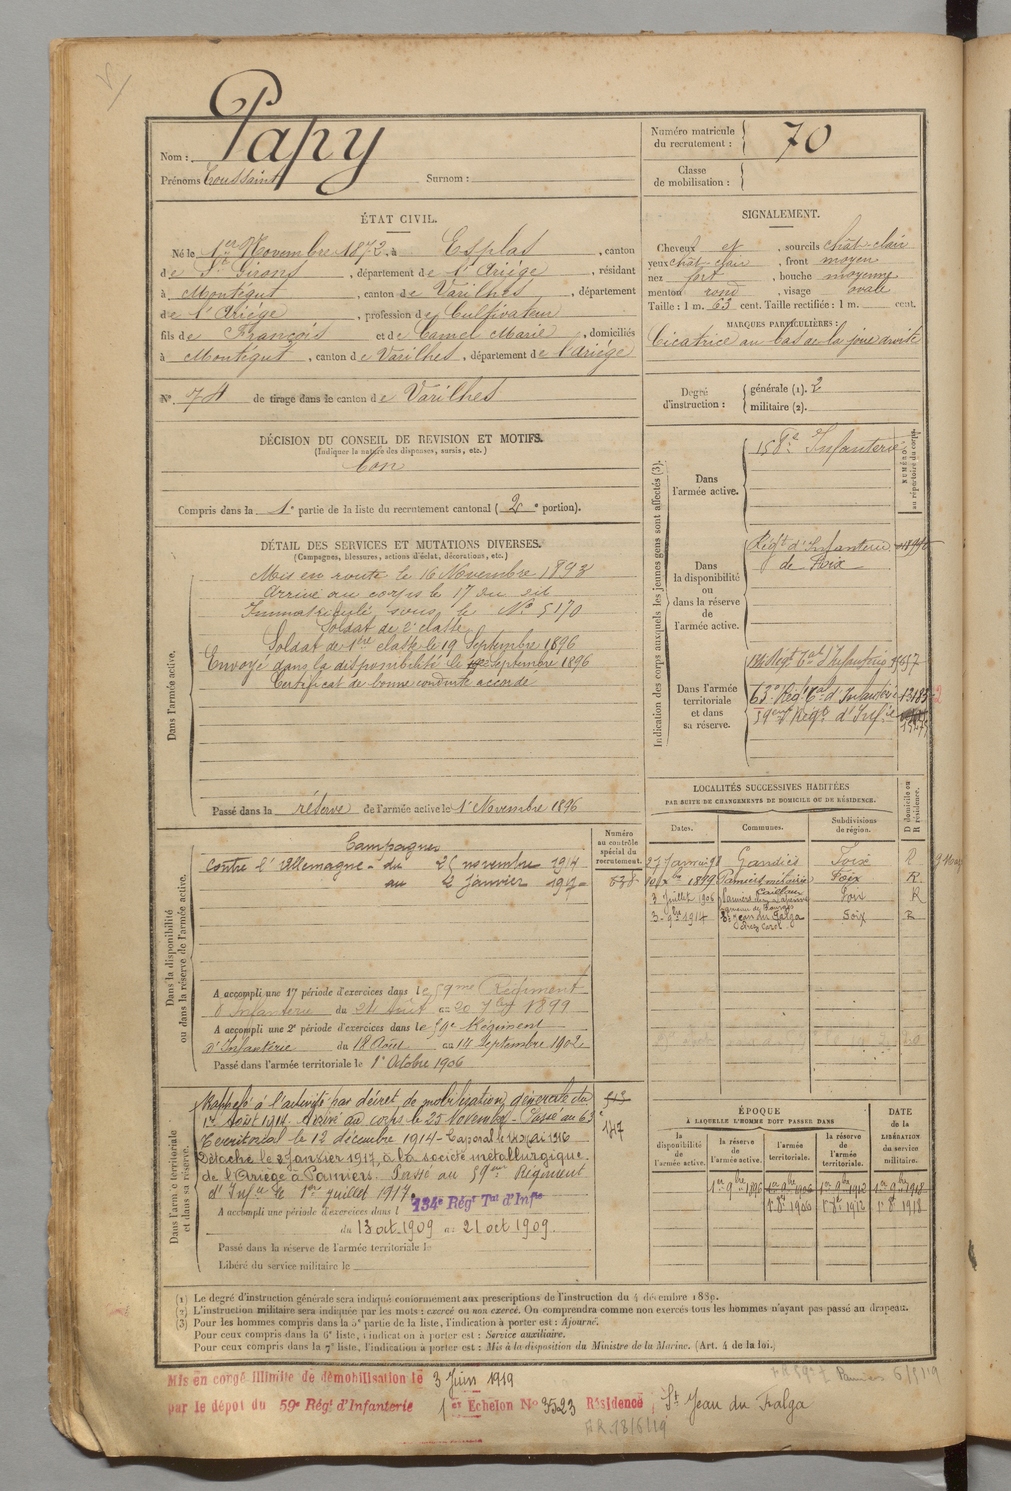 Papy
Nom :
Prénoms Toussaint Surnom :
Numéro matricule
du recrutement : 70
Classe
de mobilisation :
ÉTAT CIVIL.
Né le 1er Novembre 1872, à Esplas, canton
de St Girons, département de l'Ariège, résidant
à Montégut, canton de Varilhes, département
de l'Ariège, profession de Cultivateur
fils de François et de Camel Marie, domiciliés
à Montégut, canton de Varilhes, département de l'Ariège
SIGNALEMENT.
Cheveux et, sourcils chât-clair
yeux chât-clair, front moyen
nez fort, bouche moyenne
menton rond, visage ovale
Taille : 1 m. 63 cent. Taille rectifiée : 1 m. cent.
MARQUES PARTICULIÈRES :
Cicatrice au bas de la joue droite
N° 74 de tirage dans le canton de Varilhes
Degré
d'instruction :
générale (1). 2
militaire (2).
DÉCISION DU CONSEIL DE REVISION ET MOTIFS.
(Indiquer la nature des dispenses, sursis, etc.)
bon
Compris dans la 1e partie de la liste du recrutement cantonal (2e portion).
DÉTAIL DES SERVICES ET MUTATIONS DIVERSES.
(Campagnes, blessures, actions d'éclat, décorations, etc.)
Dans l'armée active.
Mis en route le 16 Novembre 1893
Arrivé au corps le 17 du dit
Immatriculé sous le No 5170
Soldat de 2e classe
Soldat de 1ère classe le 19 Septembre 1896
Envoyé dans la disponibilité le Septembre 1896
Certificat de bonne conduite accordé
Passé dans la réserve de l'armée active le 1er Novembre 1896
Indication des corps auxquels les jeunes gens sont affectés (3).
NUMÉRO
au répertoire du corps.
Dans
l'armée active.
158e Infanterie
Dans
la disponibilité
ou
dans la réserve
de
l'armée active.
Régt d'Infanterie
de Foix
Dans l'armée
territoriale
et dans
sa réserve.
134 Régt Tal d'Infanterie
63e Régt Tal d'Infanterie
59eme Régt d'Infie
LOCALITÉS SUCCESSIVES HABITÉES
PAR SUITE DE CHANGEMENTS DE DOMICILE OU DE RÉSIDENCE.
Dates. Communes. Subdivisions
de région. D domicile ou
R résidence.
27 Janvier 98 Gandiès Foix R
10 Xbre 1899 Pamiers Foix R
3 Juillet 1906 Pamiers Foix R
3. 9bre 1914 St Jean du Falga Foix R
chez Carol
Dans la disponibilité
ou dans la réserve de l'armée active.
Numéro
au contrôle
spécial du
recrutement.
Campagnes
Contre l'Allemagne - du 25 novembre 1914
au 2 Janvier 1917
A accompli une 1re période d'exercices dans le 59me Régiment
d'Infanterie du 24 Août au 20 7bre 1899
A accompli une 2e période d'exercices dans le 59e Régiment
d'Infanterie du 18 Août au 14 Septembre 1902
Passé dans l'armée territoriale le 1er Octobre 1906
Dans l'armée territoriale
et dans sa réserve.
Rappelé à l'activité par décret de mobilisation générale du
1er Août 1914. Arrivé au corps le 25 Novembre - Passé au 63
Territorial le 12 décembre 1914 - Caporal le 14 Mai 1916
Détaché le 2 Janvier 1917, à la société métallurgique
de l'Ariège à Pamiers. Passé au 59eme Régiment
d'Infie le 1er juillet 1917.
A accompli une période d'exercices dans l 134e Régt Tal d'Infie
du 13 oct. 1909 au 21 oct 1909
Passé dans la réserve de l'armée territoriale le
Libéré du service militaire le
1417
ÉPOQUE
À LAQUELLE L'HOMME DOIT PASSER DANS
la
disponibilité
de
l'armée active.
la réserve
de
l'armée active.
l'armée
territoriale.
la réserve
de
l'armée
territoriale.
DATE
de la
LIBÉRATION
du service
militaire.
1er 9bre 1896 1er 9bre 1906 1er 9bre 1912 1er 9bre 1918
1er 8bre 1906 1er 8bre 1912 1er 8bre 1918
(1) Le degré d'instruction générale sera indiqué conformément aux prescriptions de l'instruction du 4 décembre 1889.
(2) L'instruction militaire sera indiquée par les mots : exercé ou non exercé. On comprendra comme non exercés tous les hommes n'ayant pas passé au drapeau.
(3) Pour les hommes compris dans la 5e partie de la liste, l'indication à porter est : Ajourné.
Pour ceux compris dans la 6e liste, l'indication à porter est : Service auxiliaire.
Pour ceux compris dans la 7e liste, l'indication à porter est : Mis à la disposition du Ministre de la Marine. (Art. 4 de la loi.)
Mis en congé illimité de démobilisation le 3 Juin 1919
par le dépôt du 59e Régt d'Infanterie 1er Echelon No 3523 Résidence St Jean du Falga